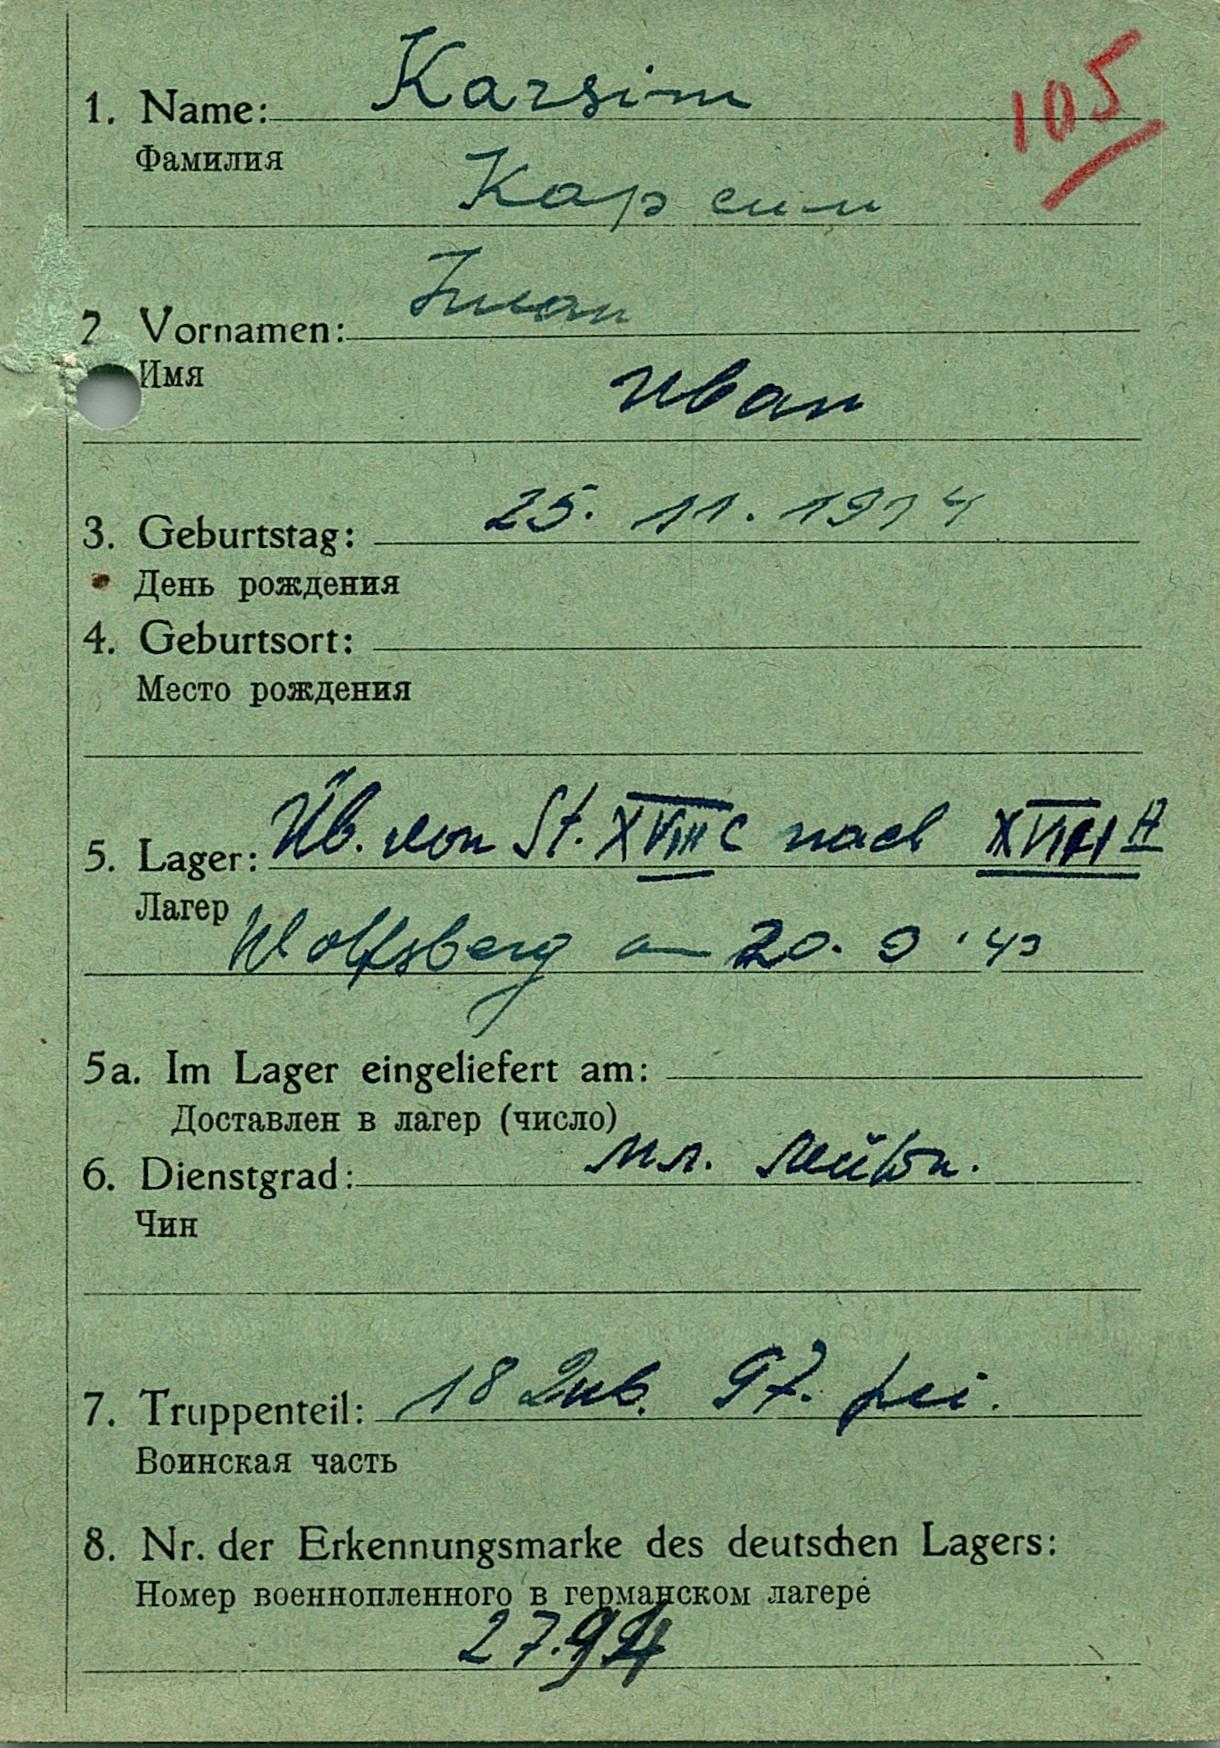 105
1. Name: Karsim
Фамилия
Карсим
2. Vornamen: Iwan
Имя
Иван
3. Geburtstag: 25. 11. 1914
День рождения
4. Geburtsort:
Место рождения
5. Lager: Üb. von St. XVIII C nach XVIII A
Лагер
Wolfsberg am 20. 9. 43
5a. Im Lager eingeliefert am:
Доставлен в лагер (число)
6. Dienstgrad: мл. лейтн.
Чин
7. Truppenteil: 18 97.
Воинская часть
8. Nr. der Erkennungsmarke des deutschen Lagers:
Номер военнопленного в германском лагере